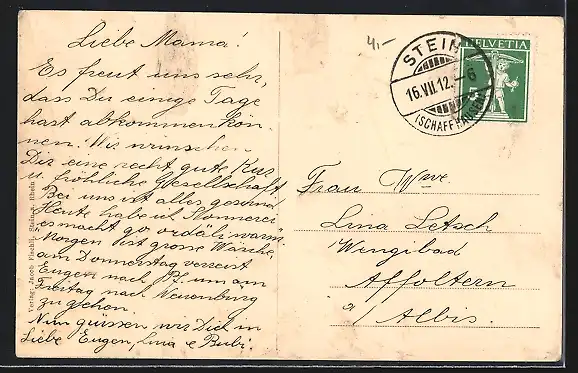 Liebe Mama!
Es freut uns sehr,
dass Du einige Tage
hast abkommen kön-
nen. Wir wünschen
Dir eine recht gute Kur
u. fröhliche Gesellschaft
Bei uns ist alles gesund
Heute habe ich
es macht so ordeli warm.
Morgen ist grosse Wäsche,
am Donnerstag verreist
Eugen nach Pf. um am
Freitag nach
zu gehen.
Nun grüssen wir Dich in
Liebe Eugen, Lina & Bubi.
Verlag: Jacob Fischli, Stein a. Rhein
4.-
STEIN
16.VII.12.-6
(SCHAFFHAUSEN)
HELVETIA
5
Frau Wwe.
Lina Letsch
Wengibad
Affoltern
a/Albis.